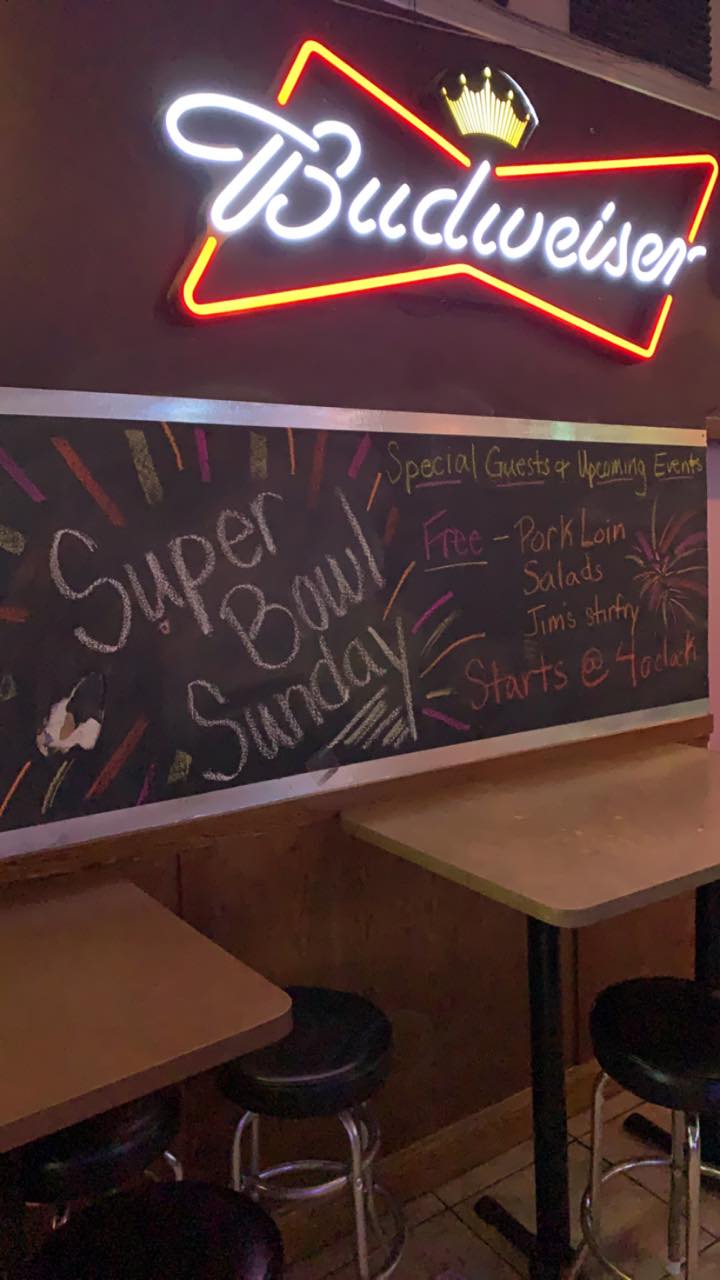 Budweiser
Super
Bowl
Sunday
Special Guests & Upcoming Events
Free - Pork Loin
Salads
Jim's stirfry
Starts @ 4oclock